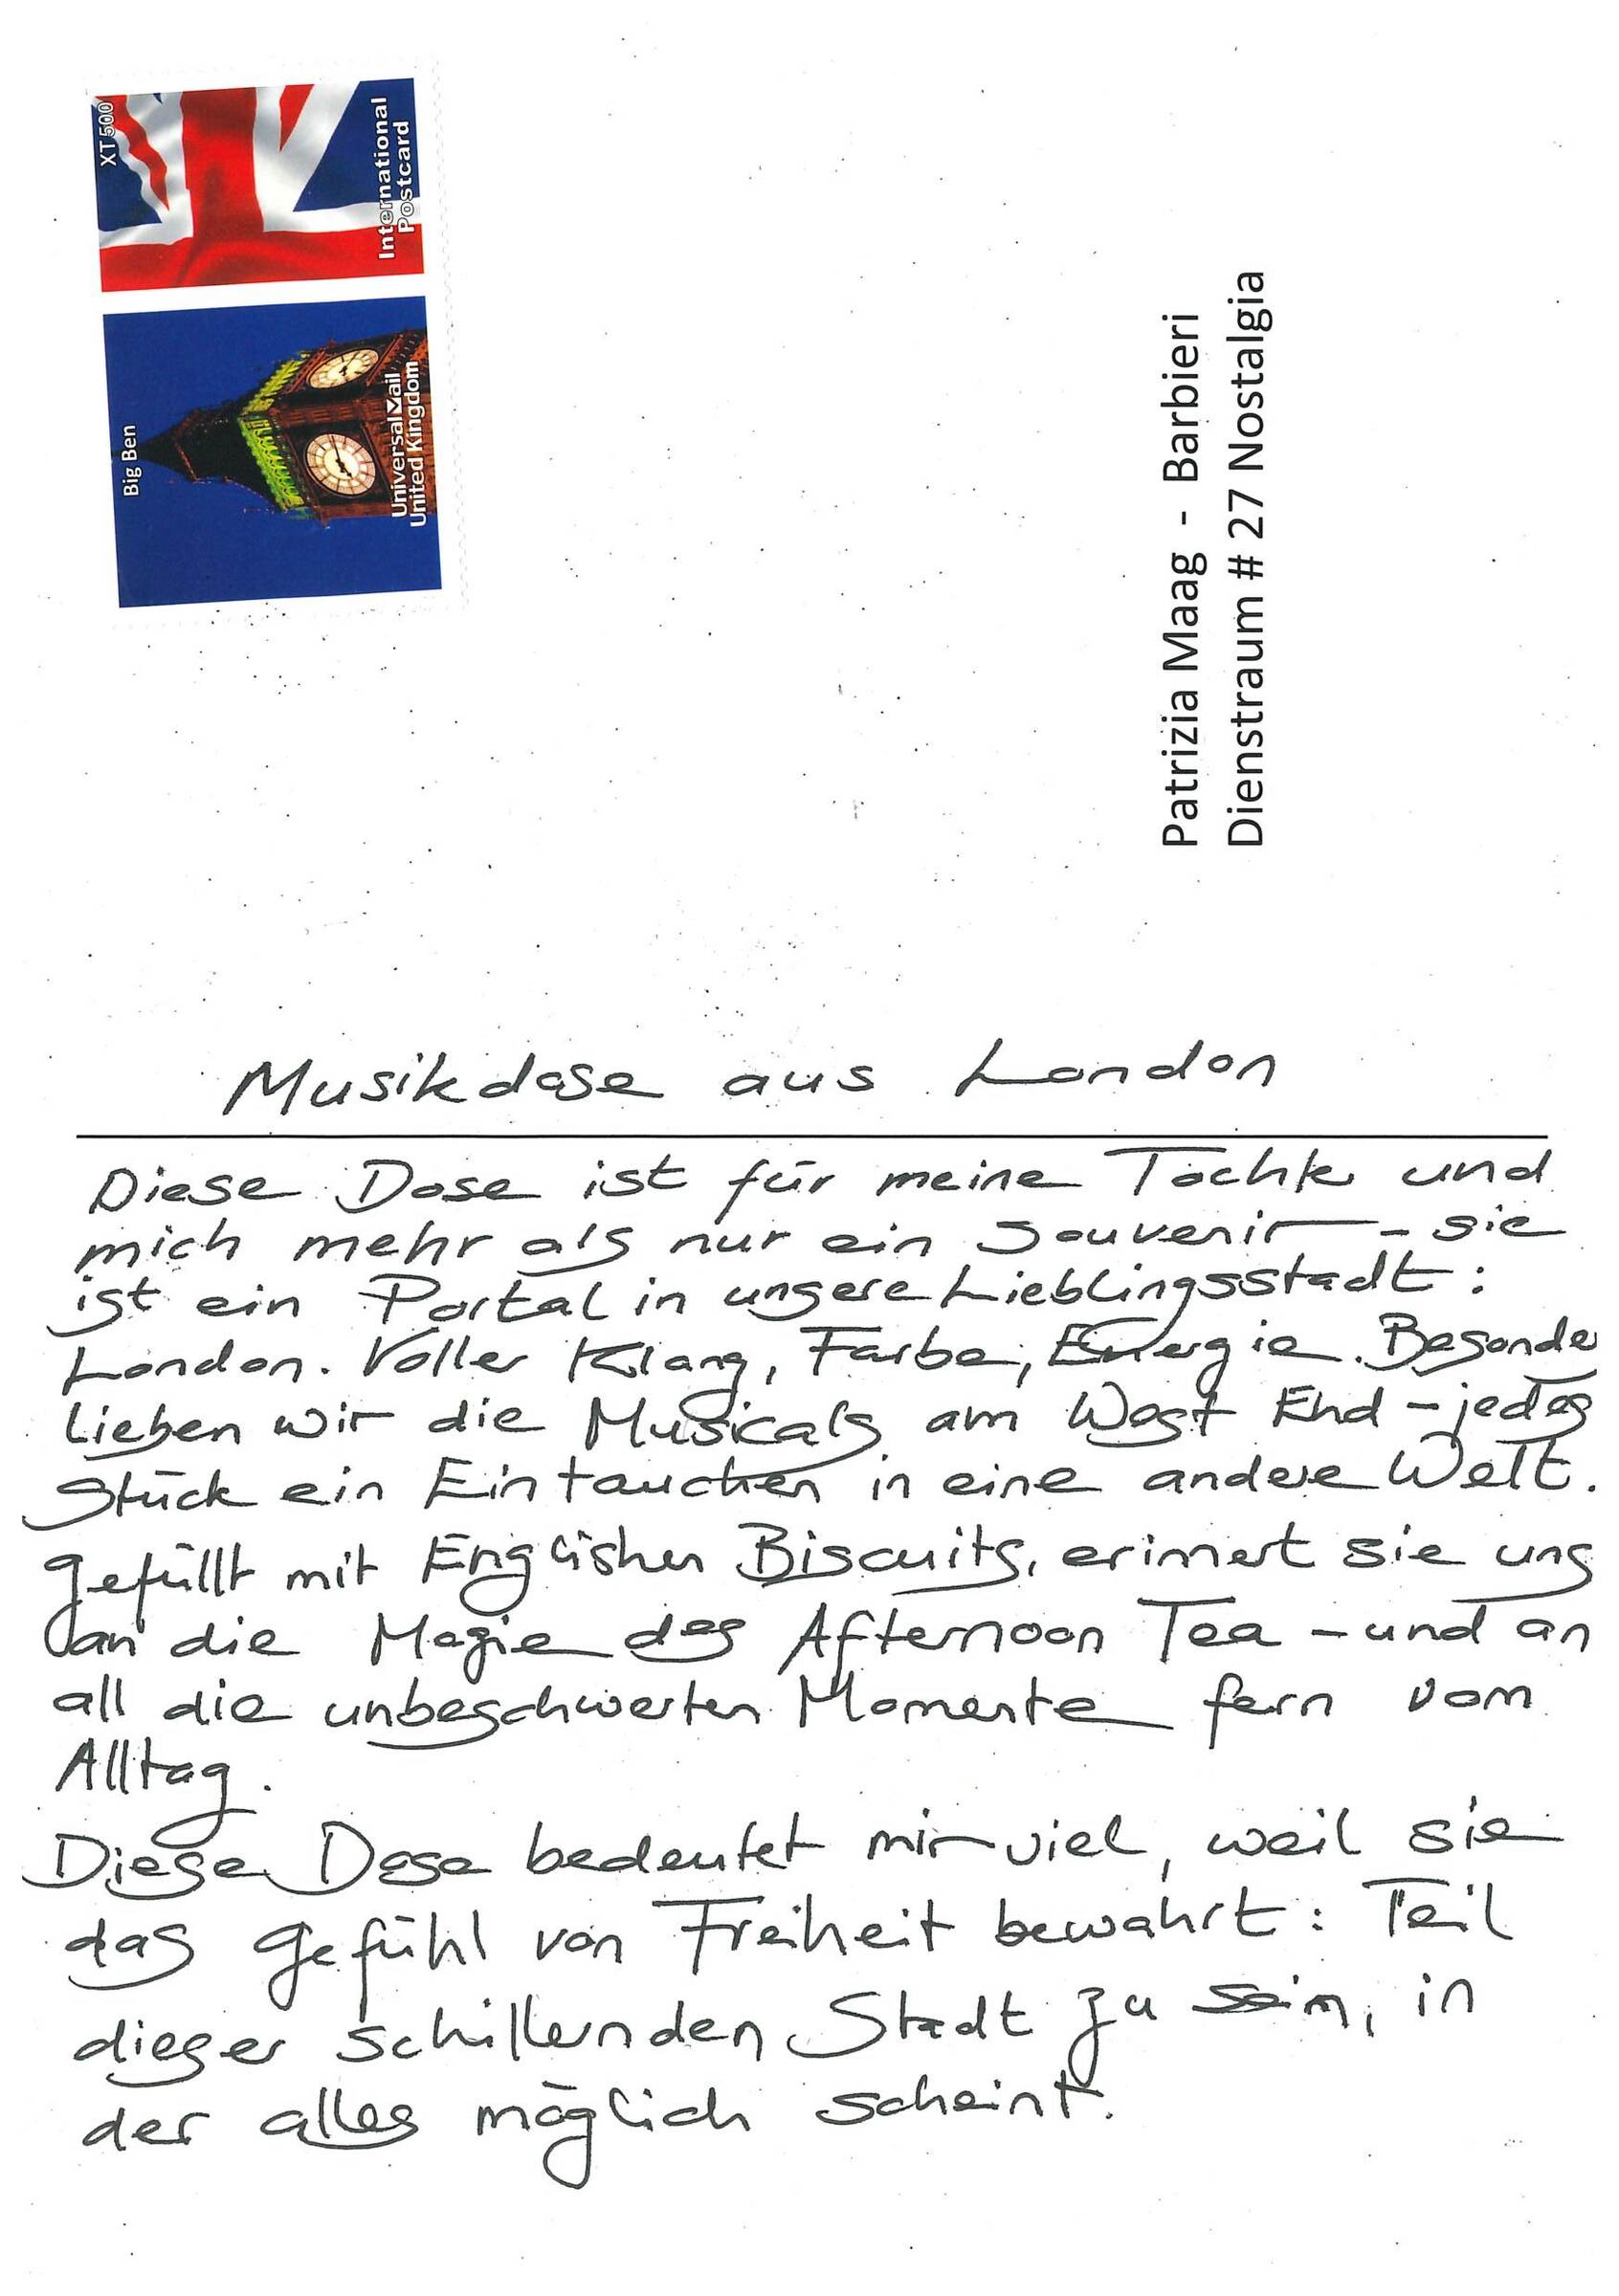 XT 500
International
Postcard
Big Ben
Universal Mail
United Kingdom
Patrizia Maag - Barbieri
Dienstraum # 27 Nostalgia
Musikdose aus London
Diese Dose ist für meine Tochter und
mich mehr als nur ein Souvenir - sie
ist ein Portal in unsere Lieblingsstadt:
London. Voller Klang, Farbe, Energie. Besonders
lieben wir die Musicals am West End - jedes
Stück ein Eintauchen in eine andere Welt.
Gefüllt mit Englishen Biscuits, erinnert sie uns
an die Magie des Afternoon Tea - und an
all die unbeschwerten Momente fern vom
Alltag.
Diese Dose bedeutet mir viel, weil sie
das Gefühl von Freiheit bewahrt: Teil
dieser schillernden Stadt zu sein, in
der alles möglich scheint.